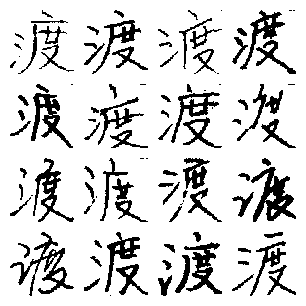 渡渡渡渡
渡渡渡渡
渡渡渡渡
渡渡渡渡